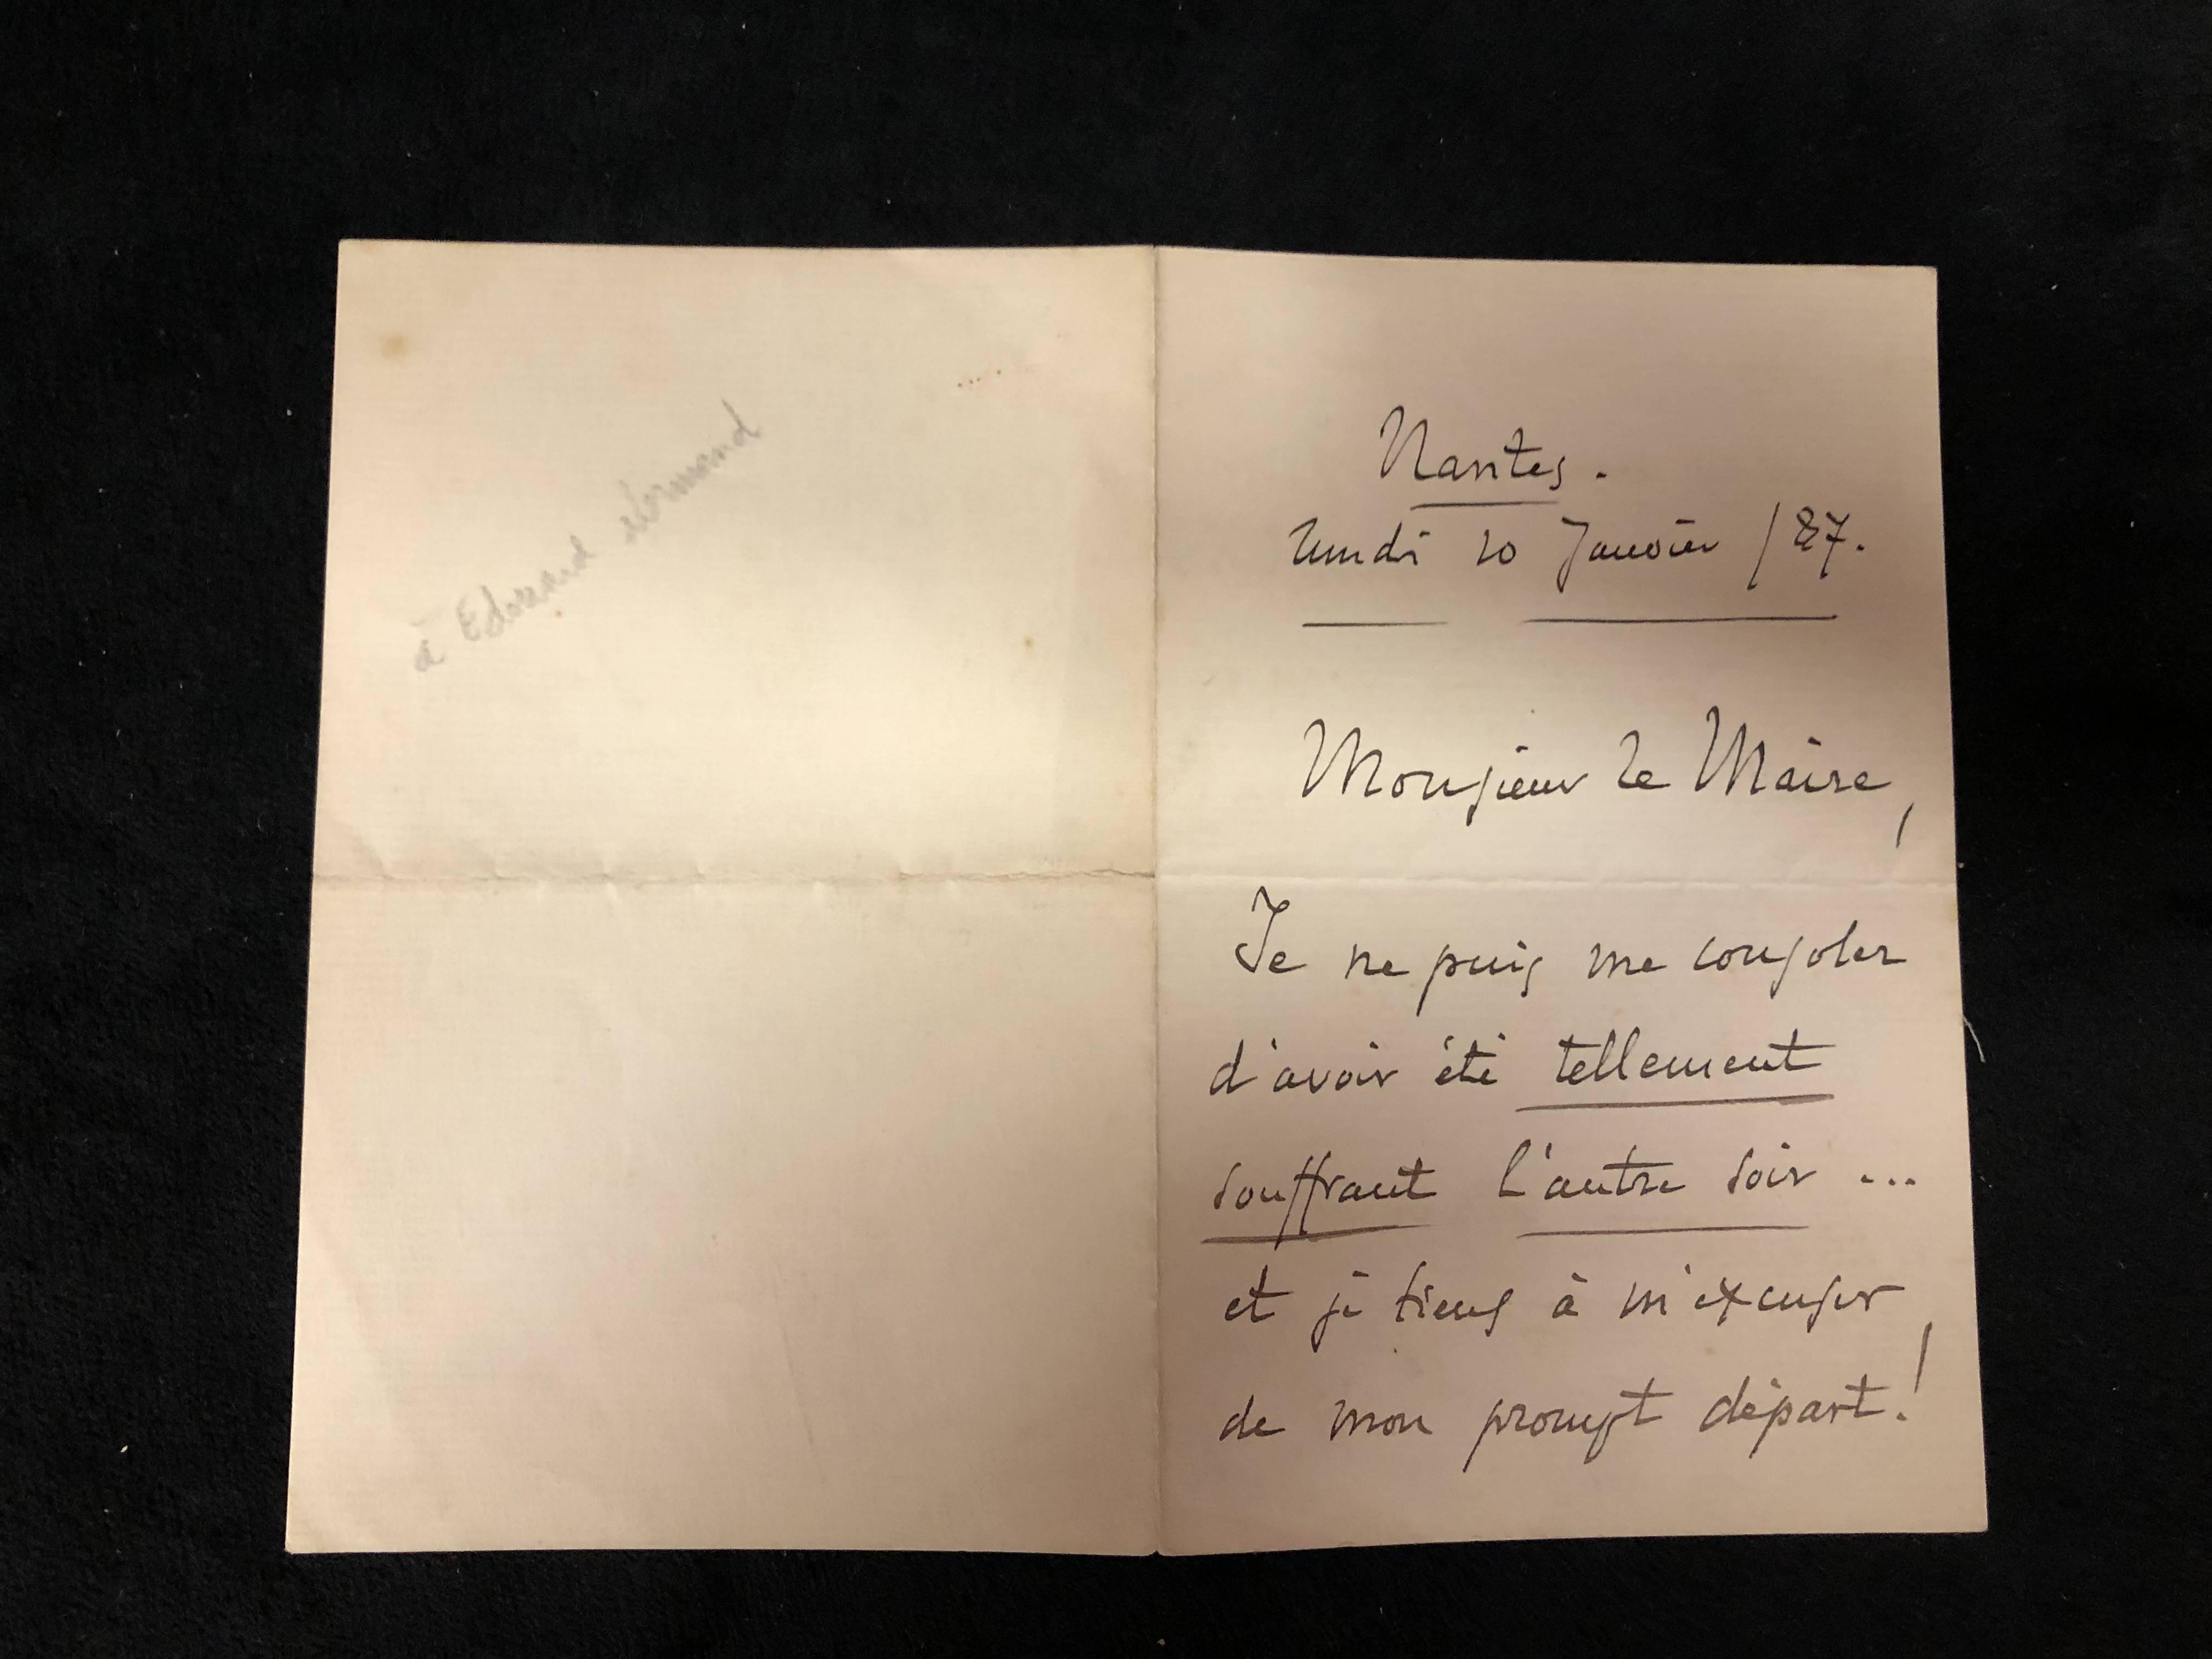 à Edouard Normand
Nantes.
lundi 10 Janvier /87.
Monsieur le Maire,
Je ne puis me consoler
d'avoir été tellement
souffrant l'autre soir ...
et je tiens à m'excuser
de mon prompt départ!